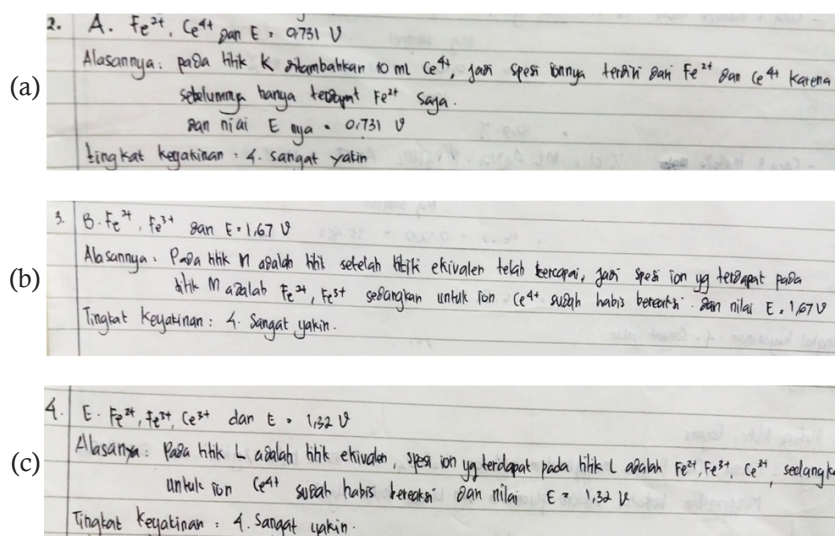 (a)
2. A. Fe²⁺, Ce⁴⁺ dan E = 0,731 V
Alasannya : pada titik K ditambahkan 10 ml Ce⁴⁺, jadi spesi ionnya terdiri dari Fe²⁺ dan Ce⁴⁺ karena
sebelumnya hanya terdapat Fe²⁺ saja.
dan nilai E nya = 0,731 V
tingkat keyakinan : 4. sangat yakin
(b)
3. B. Fe²⁺, Fe³⁺ dan E = 1,67 V
Alasannya : Pada titik M adalah titik setelah titik ekivalen telah tercapai, jadi spesi ion yg terdapat pada
titik M adalah Fe²⁺, Fe³⁺ sedangkan untuk ion Ce⁴⁺ sudah habis bereaksi. dan nilai E = 1,67 V
Tingkat Keyakinan : 4. Sangat yakin.
(c)
4. E. Fe²⁺, Fe³⁺, Ce³⁺ dan E = 1,32 V
Alasanya : Pada titik L adalah titik ekivalen, spesi ion yg terdapat pada titik L adalah Fe²⁺, Fe³⁺, Ce³⁺, sedangka
untuk ion Ce⁴⁺ sudah habis bereaksi dan nilai E = 1,32 V
Tingkat Keyakinan : 4. Sangat yakin.